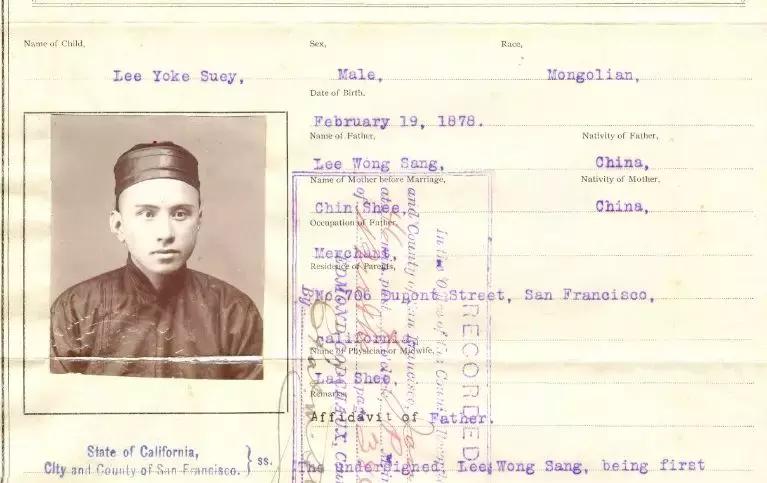 Name of Child,
Sex,
Race,
Lee Yoke Suey,
Male,
Mongolian,
Date of Birth,
February 19, 1878.
Name of Father,
Nativity of Father,
Lee Wong Sang,
China,
Name of Mother before Marriage,
Nativity of Mother,
Chin Shee,
China,
Occupation of Father,
Merchant,
Residence of Parents,
No. 706 Dupont Street, San Francisco,
California.
Name of Physician or Midwife,
Lai Shee,
Remarks
Affidavit of Father.
State of California,
City and County of San Francisco. } ss.
The undersigned, Lee Wong Sang, being first
RECORDED
In the Office of the County
and County of San Francisco
at
of
EDMOND GODCHAUX
By